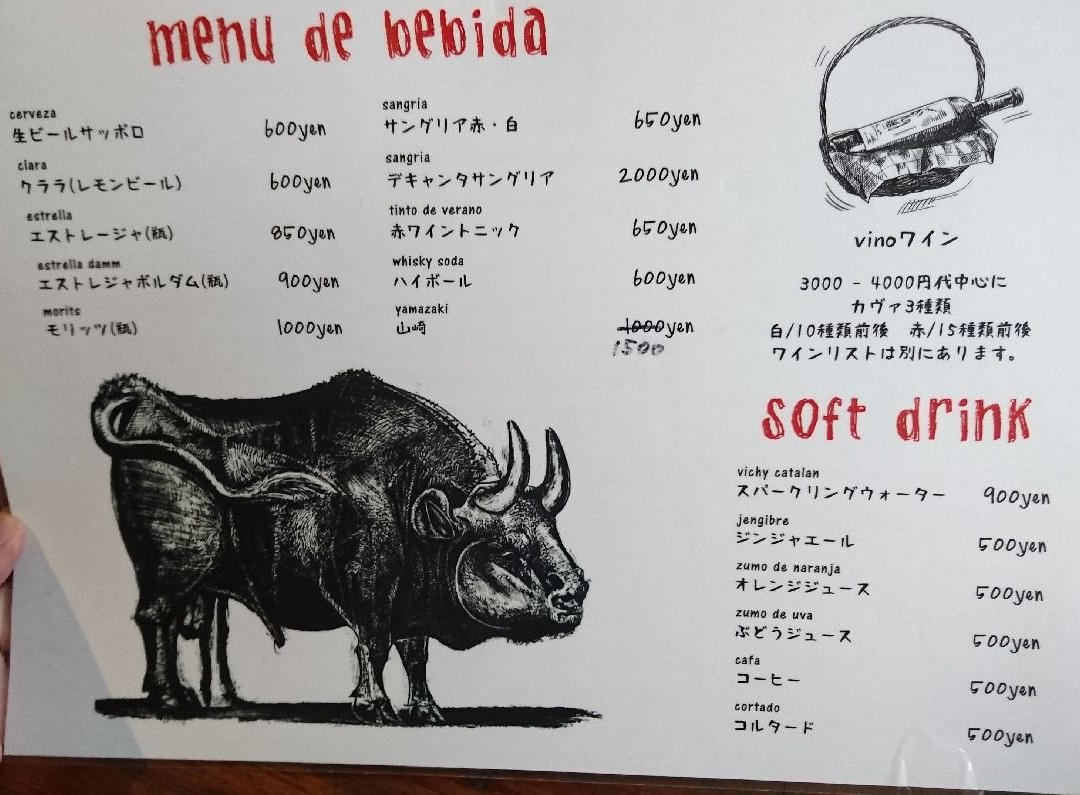 menu de bebida
cerveza
生ビールサッポロ 600yen
clara
クララ(レモンビール) 600yen
estrella
エストレージャ(瓶) 850yen
estrella damm
エストレジャボルダム(瓶) 900yen
morits
モリッツ(瓶) 1000yen
sangria
サングリア赤・白 650yen
sangria
デキャンタサングリア 2000yen
tinto de verano
赤ワイントニック 650yen
whisky soda
ハイボール 600yen
yamazaki
山崎 1000yen
1500
vinoワイン
3000 - 4000円代中心に
カヴァ3種類
白/10種類前後 赤/15種類前後
ワインリストは別にあります。
soft drink
vichy catalan
スパークリングウォーター 900yen
jengibre
ジンジャエール 500yen
zumo de naranja
オレンジジュース 500yen
zumo de uva
ぶどうジュース 500yen
cafa
コーヒー 500yen
cortado
コルタード 500yen